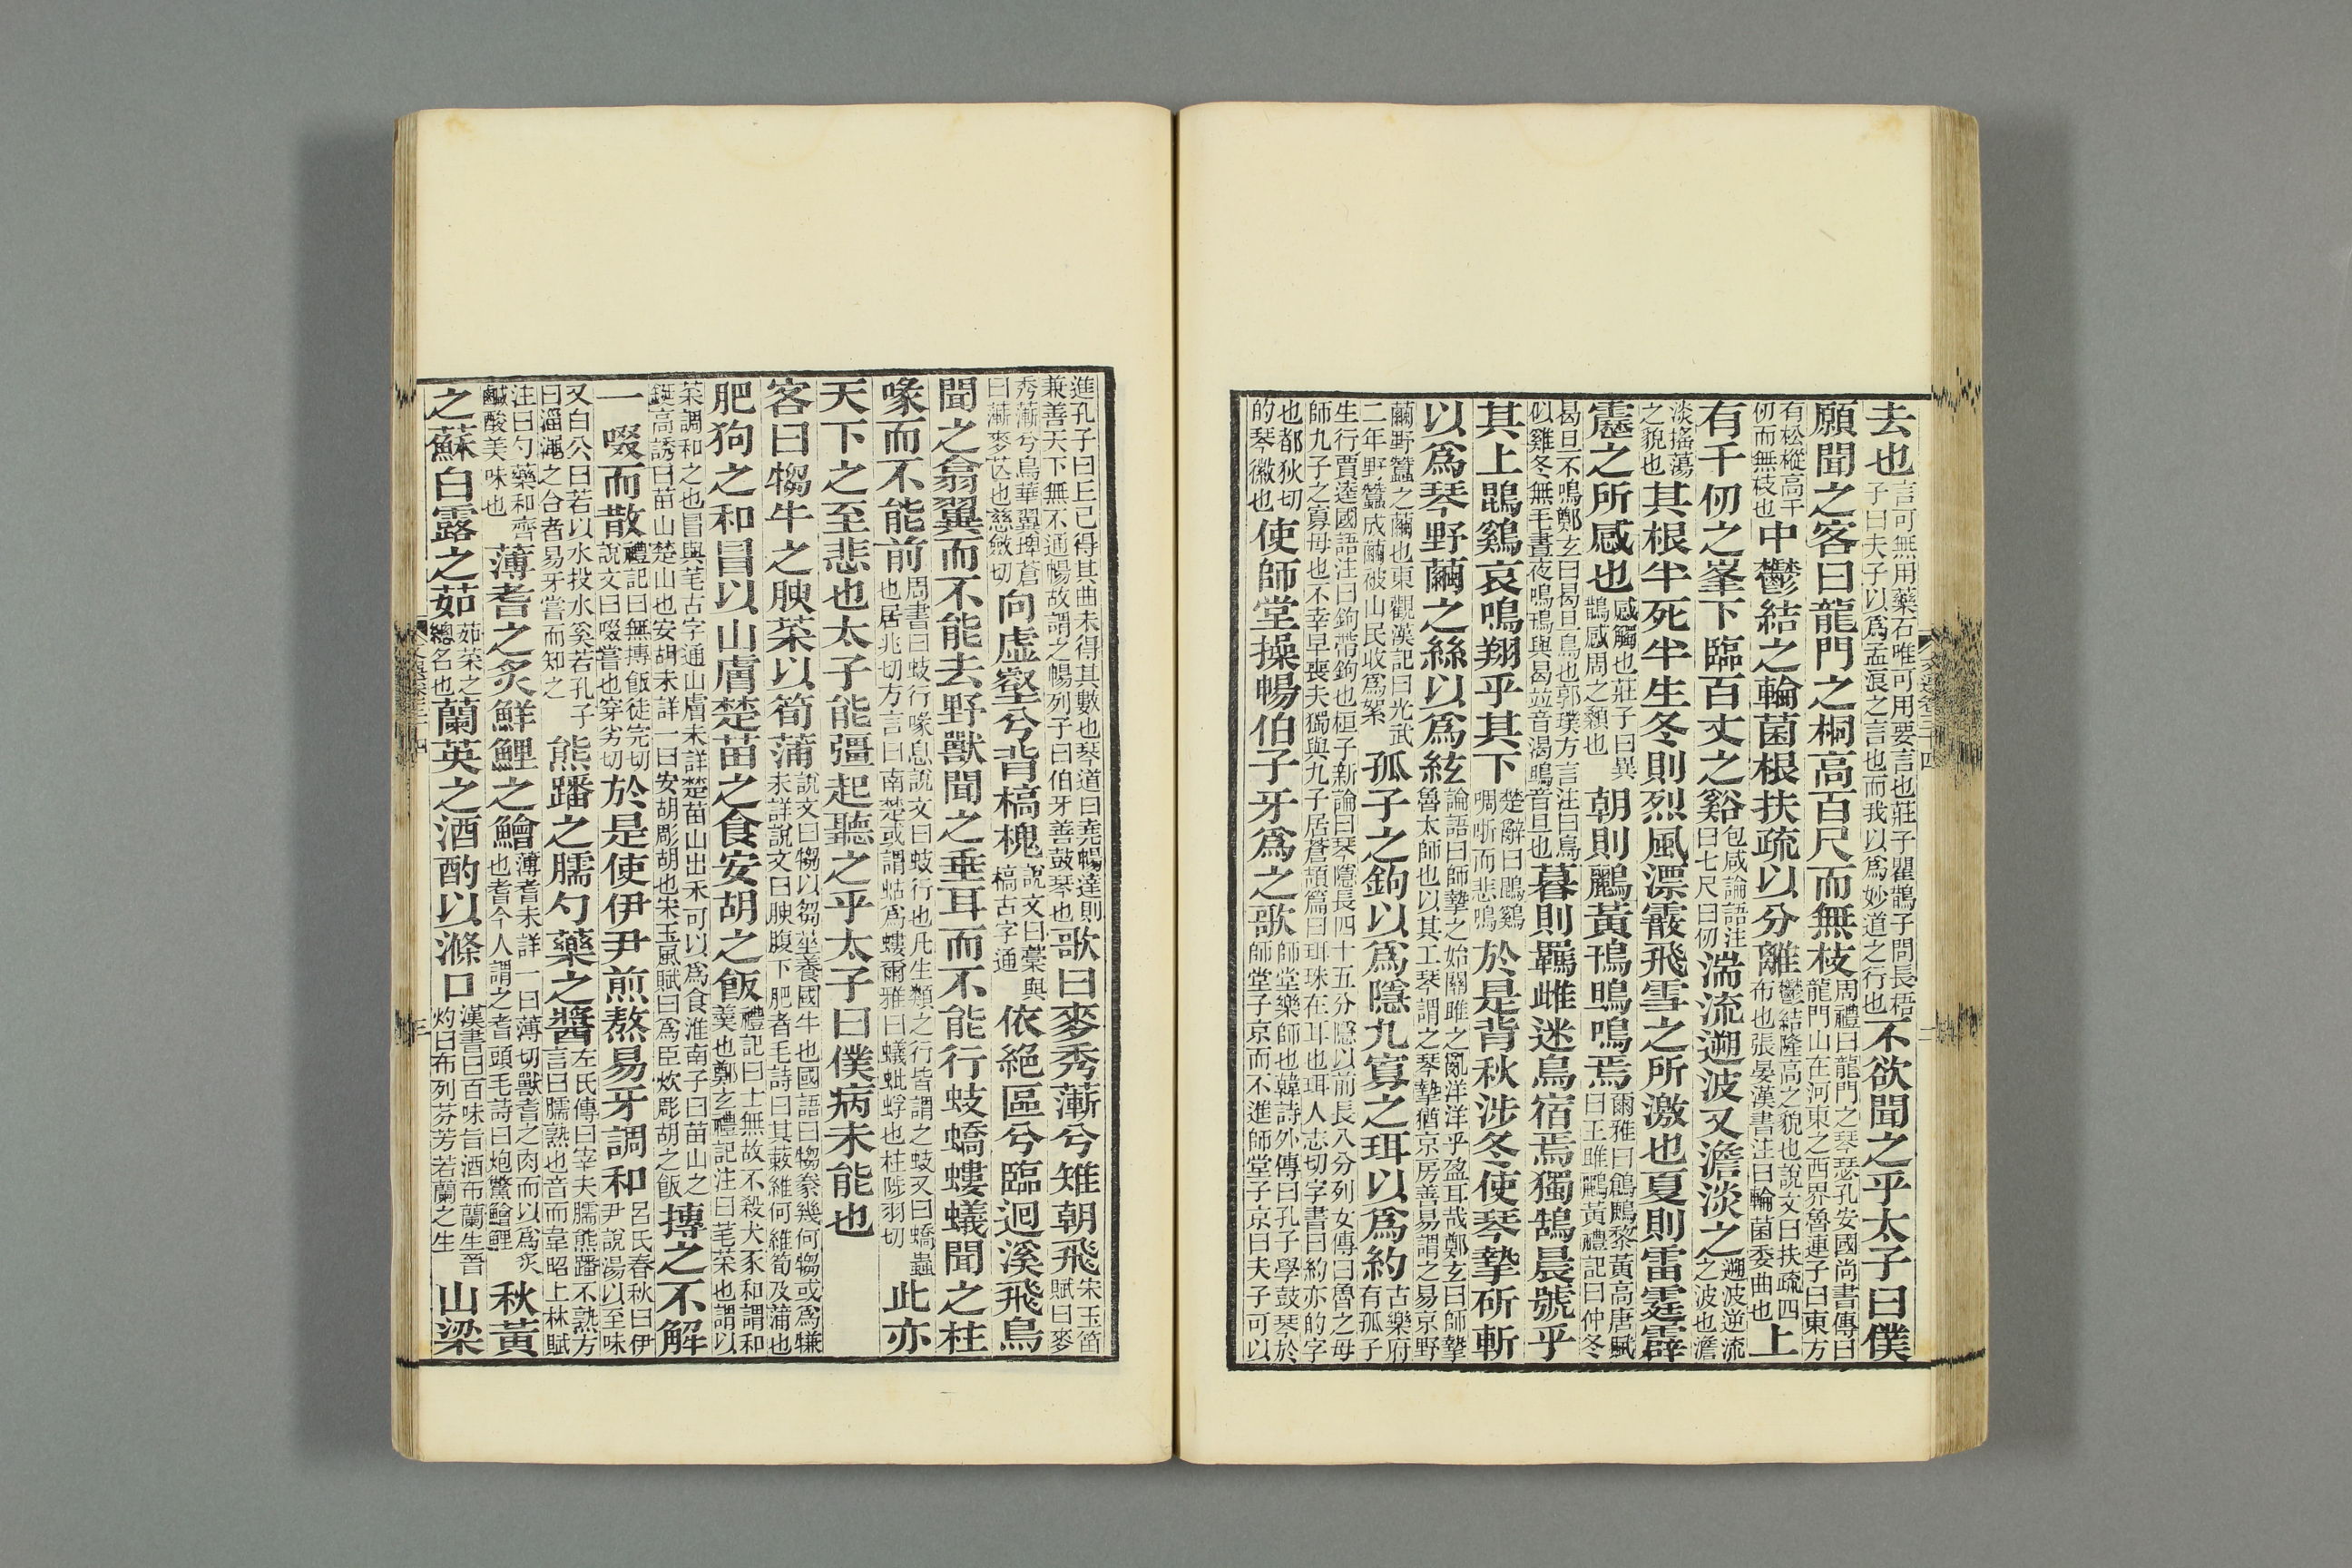 去也言可無用藥石唯可用要言也莊子瞿鵲子問長梧子曰夫子以爲孟浪之言也而我以爲妙道之行也不欲聞之乎太子曰僕
願聞之客曰龍門之桐高百尺而無枝周禮曰龍門之琴瑟孔安國尚書傳曰龍門山在河東之西界魯連子曰東方
有松樅高千仞而無枝也中鬱結之輪菌根扶疏以分離鬱結隆高之貌也說文曰扶疏四布也張晏漢書注曰輪菌委曲也上
有千仞之峯下臨百丈之谿包咸論語注曰七尺曰仞湍流遡波又澹淡之遡波逆流之波也澹
淡搖蕩之貌也其根半死半生冬則烈風漂霰飛雪之所激也夏則雷霆霹
靂之所感也感觸也莊子曰異鵲感周之顙也朝則鸝黃鳱鴠鳴焉爾雅曰鶬鶊黎黃高唐賦曰王雎鸝黃禮記曰仲冬
曷旦不鳴鄭玄曰曷旦鳥也郭璞方言注曰鳥似雞冬無毛晝夜鳴鳱與曷竝音渴鴠音旦也暮則羈雌迷鳥宿焉獨鵠晨號乎
其上鵾鷄哀鳴翔乎其下楚辭曰鵾鷄啁哳而悲鳴於是背秋涉冬使琴摯斫斬
以爲琴野繭之絲以爲絃論語曰師摯之始關雎之亂洋洋乎盈耳哉鄭玄曰師摯魯太師也以其工琴謂之琴摯猶京房善易謂之易京野
繭野蠶之繭也東觀漢記曰光武二年野蠶成繭被山民收爲絮孤子之鉤以爲隱九寡之珥以爲約古樂府有孤子
生行賈逵國語注曰鉤帶鉤也桓子新論曰琴隱長四十五分隱以前長八分列女傳曰魯之母師九子之寡母也不幸早喪夫獨與九子居蒼頡篇曰珥珠在耳也珥人志切字書曰約亦的字
也都狄切的琴徽也使師堂操暢伯子牙爲之歌師堂樂師也韓詩外傳曰孔子學鼓琴於師堂子京而不進師堂子京曰夫子可以
文選卷三十四
二
進孔子曰丘已得其曲未得其數也琴道曰堯暢達則兼善天下無不通暢故謂之暢列子曰伯牙善鼓琴也歌曰麥秀蔪兮雉朝飛宋玉笛賦曰麥
秀蔪兮鳥華翼埤蒼曰蔪麥芒也慈斂切向虛壑兮背槁槐說文曰槀與槁古字通依絕區兮臨迴溪飛鳥
聞之翕翼而不能去野獸聞之垂耳而不能行蚑蟜螻蟻聞之柱
喙而不能前周書曰蚑行喙息說文曰蚑行也凡生類之行皆謂之蚑又曰蟜蟲也居兆切方言曰南楚或謂蛄爲螻爾雅曰蟻蚍蜉也柱陟羽切此亦
天下之至悲也太子能彊起聽之乎太子曰僕病未能也
客曰犓牛之腴菜以筍蒲說文曰犓以芻莝養國牛也國語曰犓豢幾何犓或爲㹇未詳說文曰腴腹下肥者毛詩曰其蔌維何維筍及蒲也
肥狗之和冒以山膚楚苗之食安胡之飰禮記曰士無故不殺犬豕和謂和羹也鄭玄禮記注曰芼菜也謂以
菜調和之也冒與芼古字通山膚未詳楚苗山出禾可以爲食淮南子曰苗山之鋋高誘曰苗山楚山也安胡未詳一曰安胡彫胡也宋玉風賦曰爲臣炊彫胡之飯摶之不解
一啜而散禮記曰無摶飯徒完切說文曰啜嘗也穿劣切於是使伊尹煎熬易牙調和呂氏春秋曰伊尹說湯以至味
又白公曰若以水投水奚若孔子曰淄澠之合者易牙嘗而知之熊蹯之臑勺藥之醬左氏傳曰宰夫臑熊蹯不熟方言曰臑熟也音而韋昭上林賦
注曰勺藥和齊鹹酸美味也薄耆之炙鮮鯉之鱠薄耆未詳一曰薄切獸耆之肉而以爲炙也耆今人謂之耆頭毛詩曰炮鱉鱠鯉秋黃
之蘇白露之茹茹菜之總名也蘭英之酒酌以滌口漢書曰百味旨酒布蘭生晉灼曰布列芬芳若蘭之生山梁
三